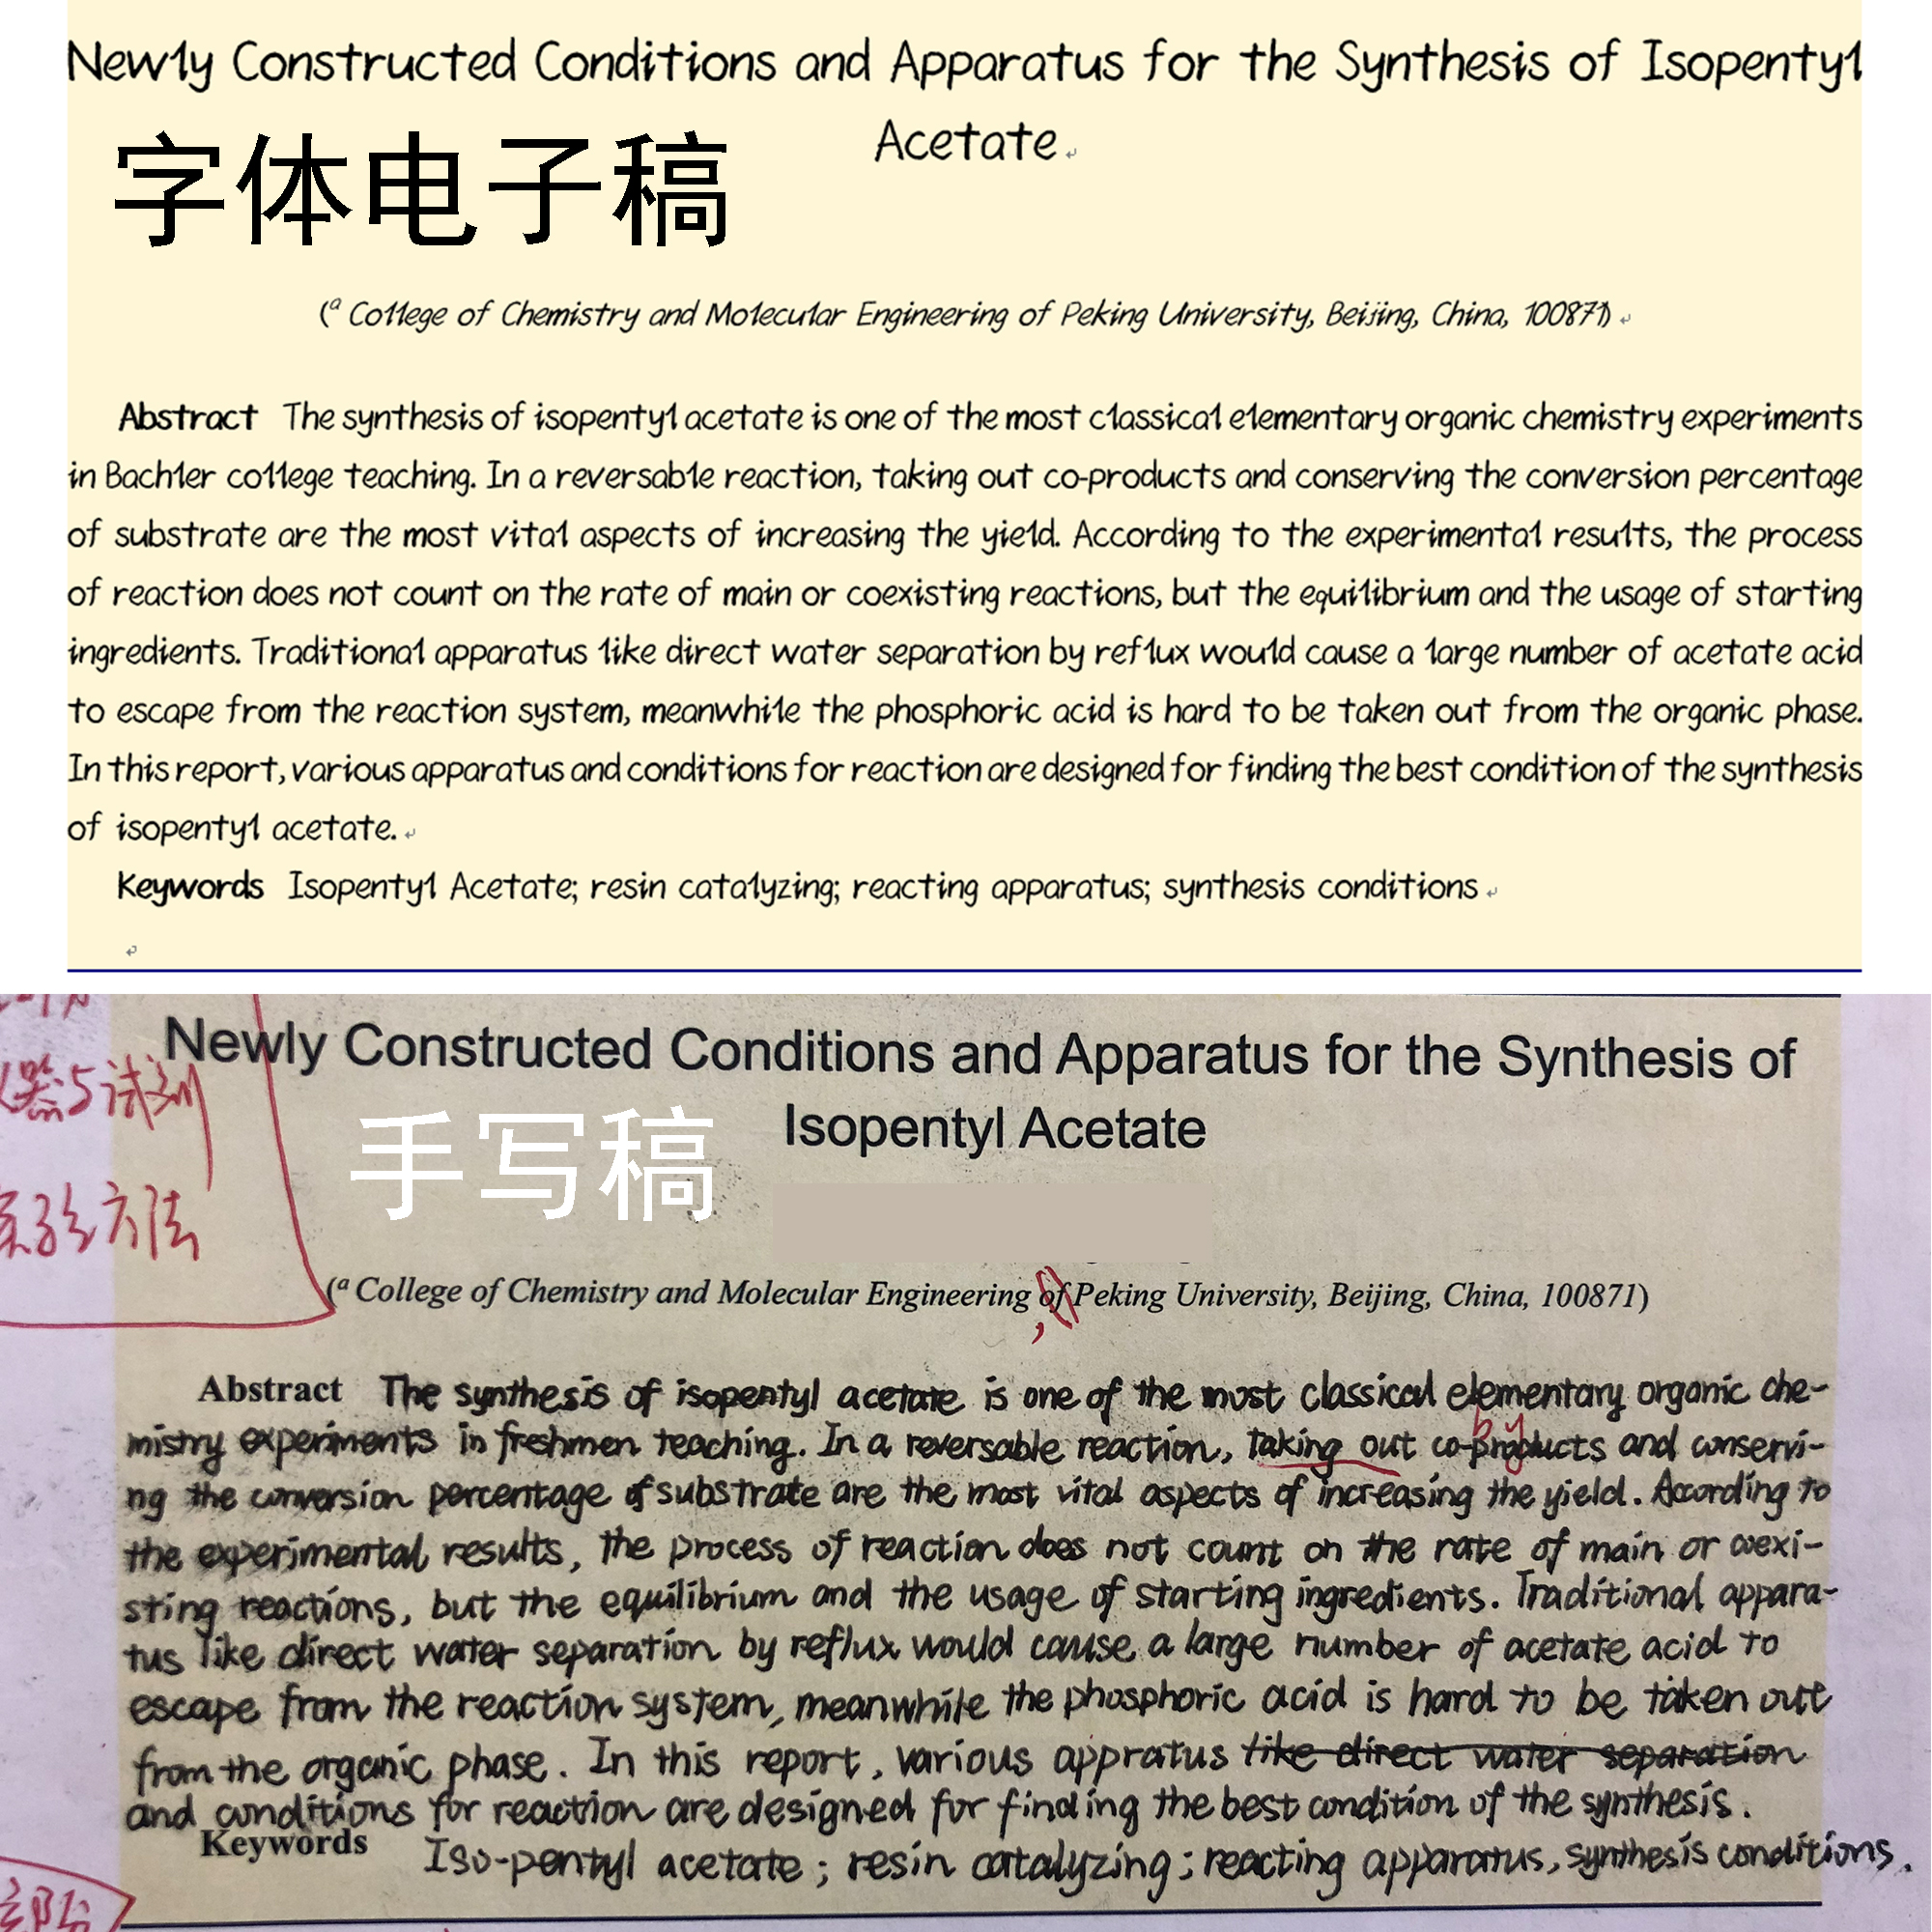 Newly Constructed Conditions and Apparatus for the Synthesis of Isopentyl
Acetate
字体电子稿
(a College of Chemistry and Molecular Engineering of Peking University, Beijing, China, 100871)
Abstract The synthesis of isopentyl acetate is one of the most classical elementary organic chemistry experiments
in Bachler college teaching. In a reversable reaction, taking out co-products and conserving the conversion percentage
of substrate are the most vital aspects of increasing the yield. According to the experimental results, the process
of reaction does not count on the rate of main or coexisting reactions, but the equilibrium and the usage of starting
ingredients. Traditional apparatus like direct water separation by reflux would cause a large number of acetate acid
to escape from the reaction system, meanwhile the phosphoric acid is hard to be taken out from the organic phase.
In this report, various apparatus and conditions for reaction are designed for finding the best condition of the synthesis
of isopentyl acetate.
Keywords Isopentyl Acetate; resin catalyzing; reacting apparatus; synthesis conditions
Newly Constructed Conditions and Apparatus for the Synthesis of
Isopentyl Acetate
手写稿
方法
(a College of Chemistry and Molecular Engineering of Peking University, Beijing, China, 100871)
,
Abstract The synthesis of isopentyl acetate is one of the most classical elementary organic che-
by
mistry experiments in freshmen teaching. In a reversable reaction, taking out co-products and conservi-
ng the conversion percentage of substrate are the most vital aspects of increasing the yield. According to
the experimental results, the process of reaction does not count on the rate of main or coexi-
sting reactions, but the equilibrium and the usage of starting ingredients. Traditional appara-
tus like direct water separation by reflux would cause a large number of acetate acid to
escape from the reaction system, meanwhile the phosphoric acid is hard to be taken out
from the organic phase. In this report, various appratus like direct water separation
and conditions for reaction are designed for finding the best condition of the synthesis.
Keywords Iso-pentyl acetate; resin catalyzing; reacting apparatus, synthesis conditions.